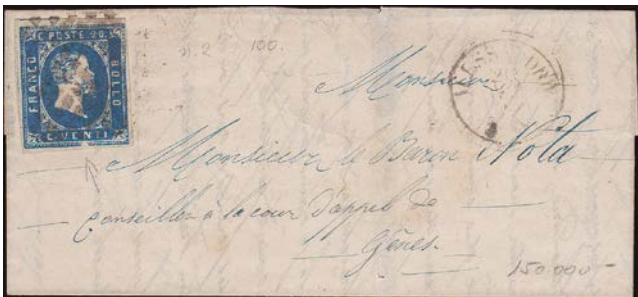 C. POSTE 20.
FRANCO
BOLLO
C. VENTI
n. 2
100.
Monsieur
Monsieur le Baron Nota
Conseiller à la cour d'appel de
Gênes.
150.000-